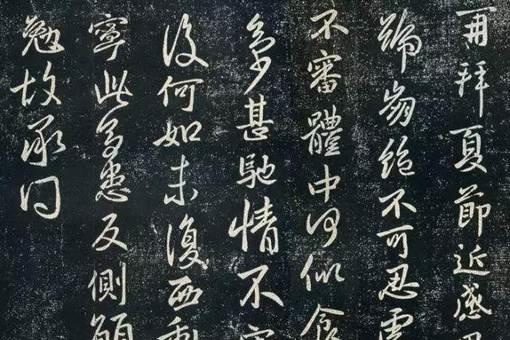 再拜夏節近感思
號崩絕不可忍
不審體中何似食
甚馳情不
何如未復西
寧此多患反側願
勉故承問